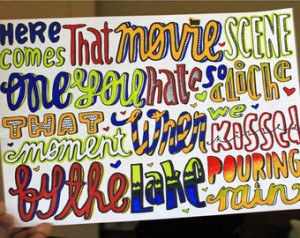 HERE COMES THAT movie SCENE
one you hate so cliche
THAT moment when we KISSED
by the Lake POURING rain